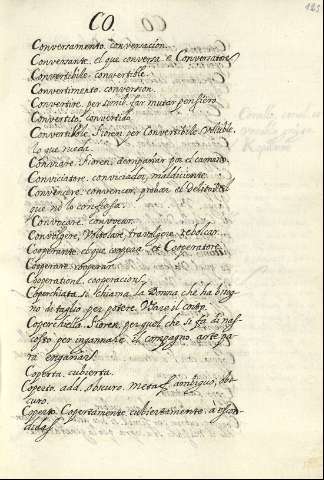 CO.
123
Conversamento. conversación.
Conversante. el que conversa. e Conversatore
Convertibile. convertible.
Convertimento. conversion.
Convertire. per simil. far mutar pensiero
Convertito. convertido
Convertibile. Fioren. per Convertibile. Volubile.
lo que rueda.
Conviare. Fioren. acompañar por el camino.
Conviciatore. conviciador, maldiciente.
Convincere. convencer, probar el delito
que no lo confiesa.
Convocare. convocar.
Convolgere, Voltolare, travolgere. rebolcar.
Cooperante. el que coopera. et Cooperatore.
Cooperare. cooperar.
Cooperation. cooperacion.
Coperchiata si chiama la Donna che ha
no di taglio per potere
Coperchiella. Fioren. per quel che si fa di nas-
costo per ingannare il compagno. arte pa
ra engañar.
Coperta. cubierta.
Coperto. add. obscuro. Metaf. ambiguo, obs-
curo.
Coperto. Copertamente. cubiertamente. a escon
didas